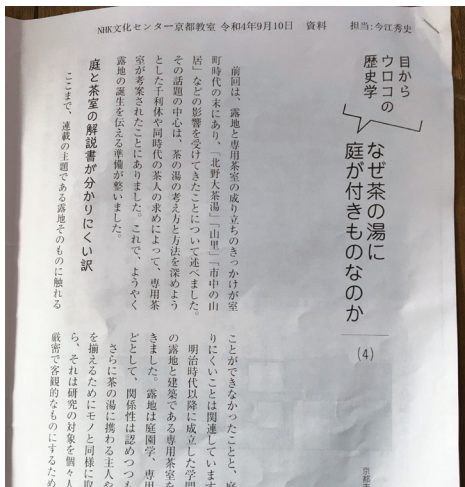 NHK文化センター京都教室 令和4年9月10日 資料 担当:今江秀史
目から
ウロコの
歴史学
なぜ茶の湯に
庭が付きものなのか
(4)
前回は、露地と専用茶室の成り立ちのきっかけが室
町時代の末にあり、「北野大茶湯」「山里」「市中の山
居」などの影響を受けてきたことについて述べました。
その話題の中心は、茶の湯の考え方と方法を深めよう
とした千利休や同時代の茶人の求めによって、専用茶
室が考案されたことにありました。これで、ようやく
露地の誕生を伝える準備が整いました。
庭と茶室の解説書が分かりにくい訳
ここまで、連載の主題である露地そのものに触れる
京都
ことができなかったことと、庭
りにくいことは関連しています
明治時代以降に成立した学問
の露地と建築である専用茶室を
きました。露地は庭園学、専用
どとして、関係性は認めつつも
さらに茶の湯に携わる主人や
を揃えるためにモノと同様に取
ら、それは研究の対象を個々人
厳密で客観的なものにするため